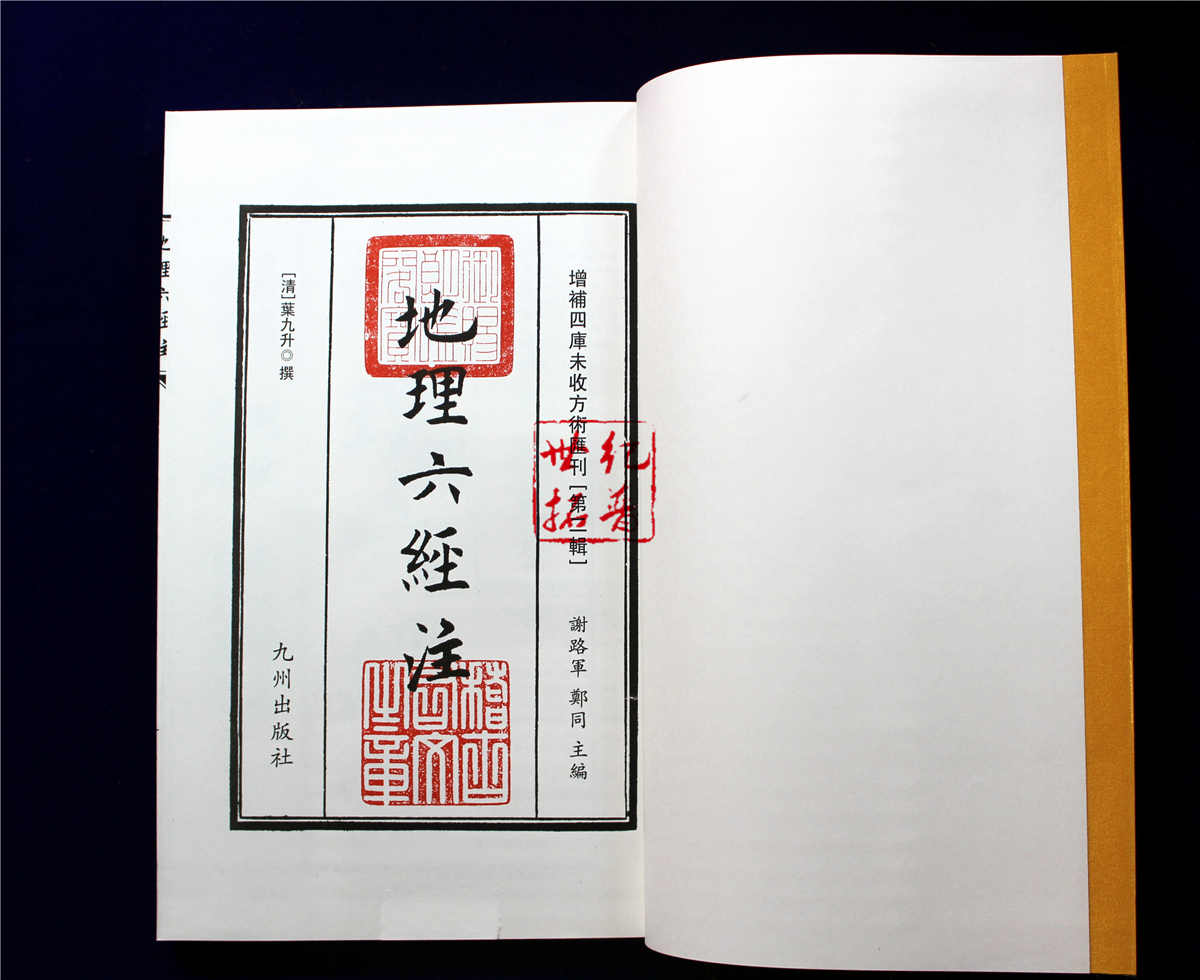 增補四庫未收方術匯刊[第二輯]
謝路軍 鄭同 主編
地理六經注
稽古
右文
之章
[清]葉九升◎撰
九州出版社
世纪
拓普